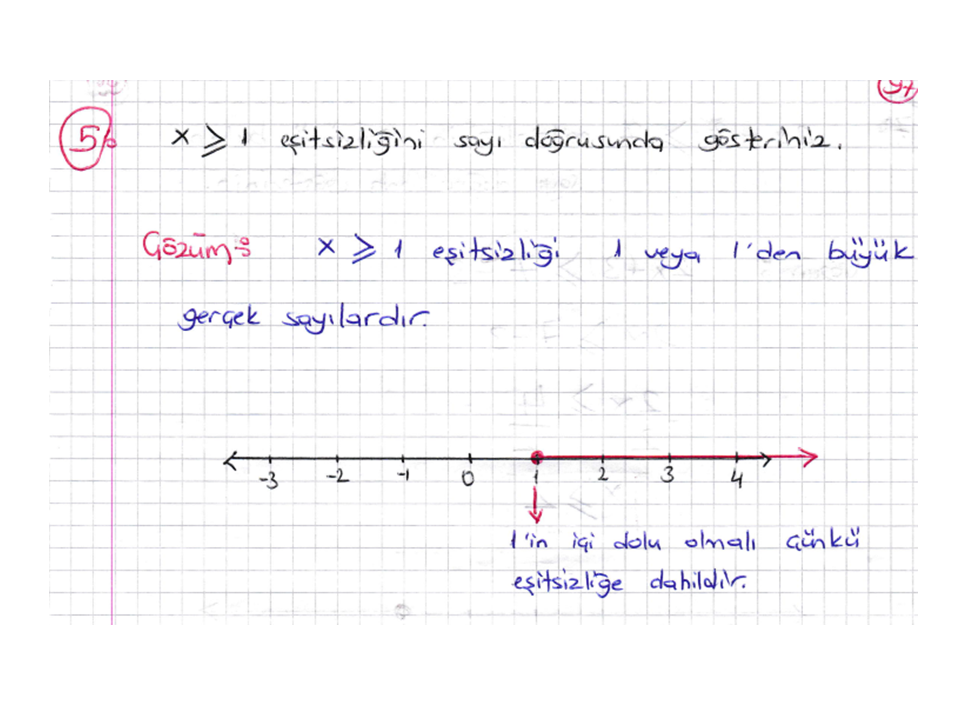 5) x ≥ 1 eşitsizliğini sayı doğrusunda gösteriniz.
Çözüm: x ≥ 1 eşitsizliği 1 veya 1'den büyük
gerçek sayılardır.
-3 -2 -1 0 1 2 3 4
1'in içi dolu olmalı çünkü
eşitsizliğe dahildir.